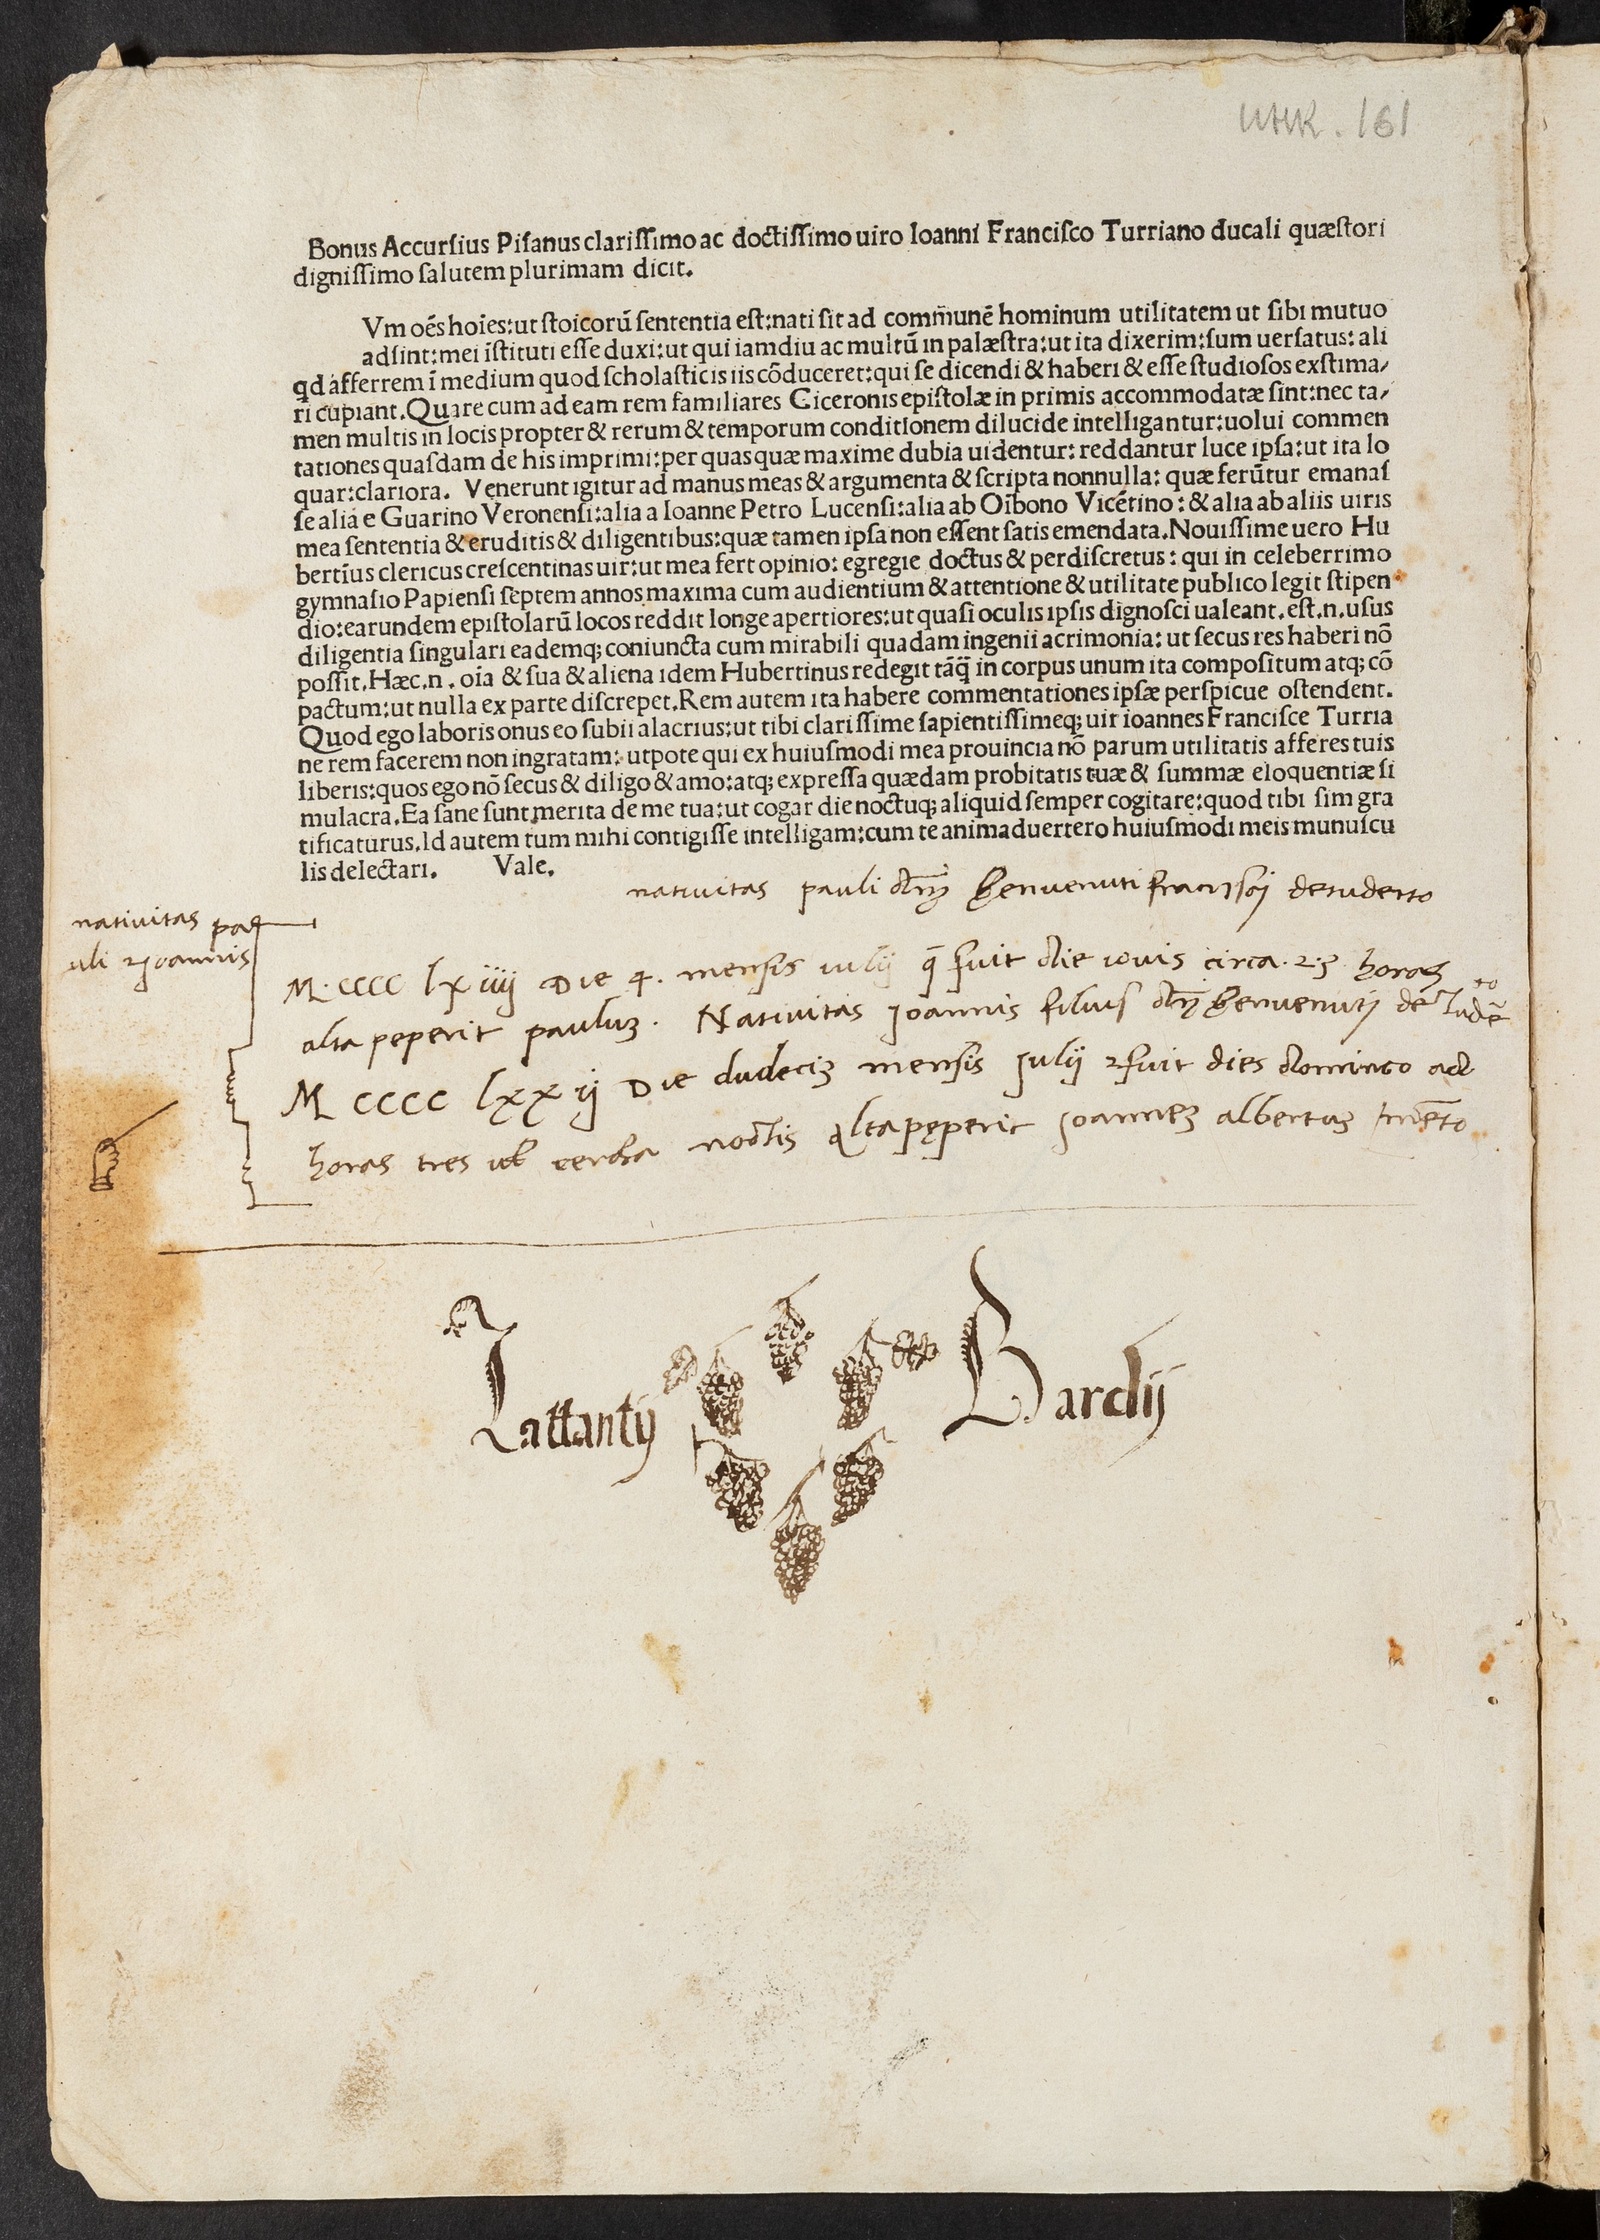 UHK. 161
Bonus Accursius Pisanus clarissimo ac doctissimo uiro Ioanni Francisco Turriano ducali quæstori
dignissimo salutem plurimam dicit.
Vm oẽs hoĩes: ut stoicorũ sententia est: nati sit ad com̃unẽ hominum utilitatem ut sibi mutuo
adsint: mei ĩstituti esse duxi: ut qui iamdiu ac multũ in palæstra: ut ita dixerim: sum uersatus: ali
qd afferrem ĩ medium quod scholasticis iis cõduceret: qui se dicendi & haberi & esse studiosos exstima/
ri cupiant. Quare cum ad eam rem familiares Ciceronis epistolæ in primis accommodatæ sint: nec ta/
men multis in locis propter & rerum & temporum conditionem dilucide intelligantur: uolui commen
tationes quasdam de his imprimi: per quas quæ maxime dubia uidentur: reddantur luce ipsa: ut ita lo
quar: clariora. Venerunt igitur ad manus meas & argumenta & scripta nonnulla: quæ ferũtur emanas
se alia e Guarino Veronensi: alia a Ioanne Petro Lucensi: alia ab Oĩbono Vicẽtino: & alia ab aliis uiris
mea sententia & eruditis & diligentibus: quæ tamen ipsa non essent satis emendata. Nouissime uero Hu
bertĩus clericus crescentinas uir: ut mea fert opinio: egregie doctus & perdiscretus: qui in celeberrimo
gymnasio Papiensi septem annos maxima cum audientium & attentione & utilitate publico legit stipen
dio: earundem epistolarũ locos reddit longe apertiores: ut quasi oculis ipsis dignosci ualeant. est. n. usus
diligentia singulari eademq; coniuncta cum mirabili quadam ingenii acrimonia: ut secus res haberi nõ
possit. Hæc. n. oĩa & sua & aliena idem Hubertinus redegit tãq̃ in corpus unum ita compositum atq; cõ
pactum: ut nulla ex parte discrepet. Rem autem ita habere commentationes ipsæ perspicue ostendent.
Quod ego laboris onus eo subii alacrius: ut tibi clarissime sapientissimeq; uir ioannes Francisce Turria
ne rem facerem non ingratam: utpote qui ex huiusmodi mea prouincia nõ parum utilitatis afferes tuis
liberis: quos ego nõ secus & diligo & amo: atq; expressa quædam probitatis tuæ & summæ eloquentiæ si
mulacra. Ea sane sunt merita de me tua: ut cogar die noctuq; aliquid semper cogitare: quod tibi sim gra
tificaturus. Id autem tum mihi contigisse intelligam: cum te animaduertero huiusmodi meis munuscu
lis delectari. Vale.
nativitas pauli benvenuti francisci detuderto
nativitas pa
uli ioannis
M. CCCC lxiiij Die 4. mensis iulij q̃ fuit die iovis circa . 23 horas
alta peperit pauluz. Nativitas joannis filius benvenutj de Tudẽto
M CCCC lxxij Die dudeciz mensis julij fuit dies dominico ad
horas tres noctis altapeperit joannez albertuz
Lattantij Bardij